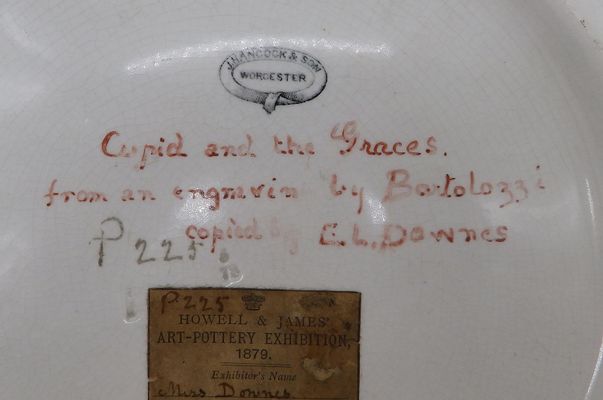 J. HANCOCK & SON
WORCESTER
Cupid and the Graces.
from an engravin by Bartolozzi
copied by E. L. Downes
P 225
P.225
HOWELL & JAMES'
ART-POTTERY EXHIBITION,
1879.
Exhibitor's Name
Miss Downes